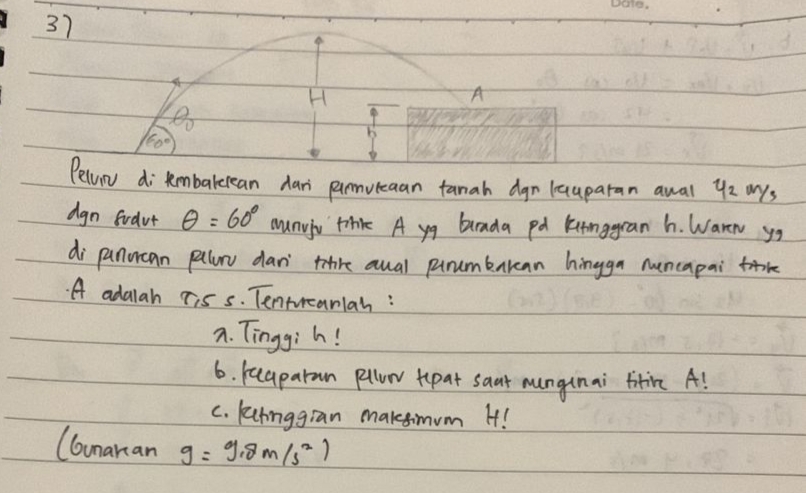 Date.
3)
H
A
θ₀
60°
h
Peluru di tembakkan dari permukaan tanah dgn kecepatan awal 42 m/s
dgn sudut θ = 60° menuju titik A yg berada pd ketinggian h. Waktu yg
di perlukan peluru dari titik awal penembakan hingga mencapai titik
A adalah s. Tentukanlah :
a. Tinggi h!
b. kecepatan peluru tepat saat mengenai titik A!
c. ketinggian maksimum H!
(Gunakan g = 9.8 m/s²)